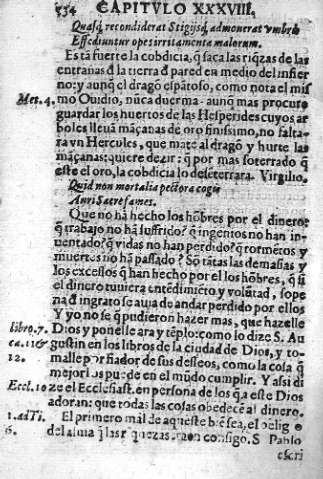 554 CAPITVLO XXXVIII.
Quasq, recondiderat Stigijsq, admonerat vmbris
Effediuntur opes irritamenta malorum.
Esta fuerte la cobdicia, q̃ saca las riq̃zas de las
entrañas d̃ la tierra d̃ pared en medio del infier
no: y aunq̃ el dragõ espãtoso, como nota el mis
Met. 4. mo Ouidio, nũca duerma, aunq̃ mas procure
guardar los huertos de las Hesperides cuyos ar
boles lleuã mãçanas de oro finissimo, no falta-
ra vn Hercules, que mate al dragõ y hurte las
mãçanas: quiere dezir: q̃ por mas soterrado q̃
este el oro, la cobdicia lo desterrara. Virgilio.
Quid non mortalia pectora cogis
Auri Sacre fames.
Que no hã hecho los hõbres por el dinero?
q̃ trabajo no hã sufrido? q̃ ingenios no han in-
uentado? q̃ vidas no han perdido? q̃ tormẽtos y
muertes no hã passado? Sõ tãtas las demasias y
los excessos q̃ han hecho por el los hõbres, q̃ si
el dinero tuuiera entẽdimiẽto y volũtad, so pe
na d̃ ingrato se auia de andar perdido por ellos
Y yo no se q̃ pudieron hazer mas, que hazelle
libro. 7. Dios y ponelle ara y tẽplo: como lo dize S. Au
ca. 11 & gustin en los libros de la ciudad de Dios, y to-
12. malle por fiador de sus desseos, como la cosa q̃
mejor los puede en el mũdo cumplir. Y assi di
Eccl. 10 ze el Ecclesiast. en persona de los q̃ a este Dios
adoran: que todas las cosas obedecẽ al dinero.
1. ad Ti. El primero mal de aqueste biẽ sea, el pelig
6. del alma q̃ las riquezas traen consigo. S. Pablo
escri